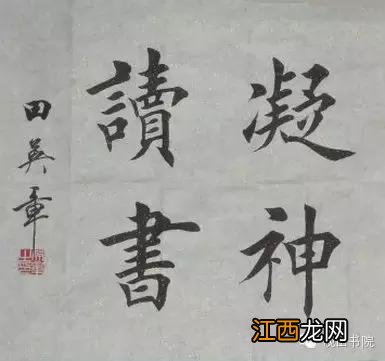 凝神
讀書
田英章
江西龙网
书院